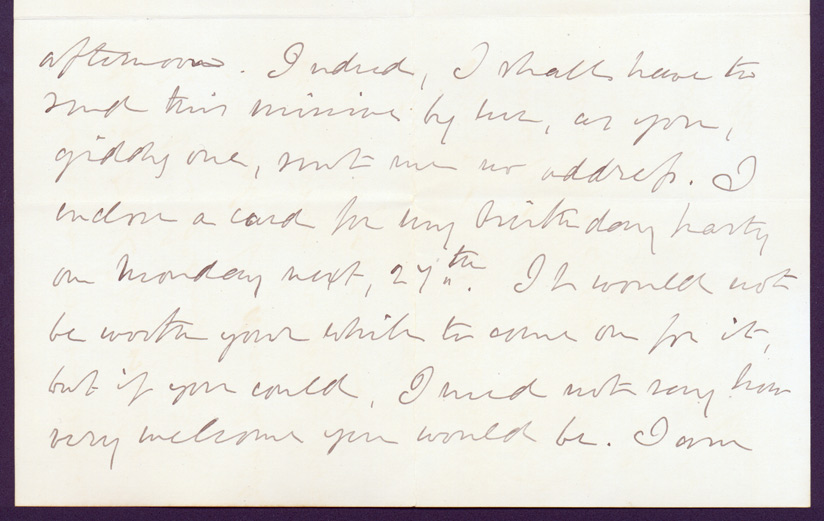 afternoon. Indeed, I shall have to
send this missive by her, as you,
giddy one, sent me no address. I
enclose a card for my birthday party
on Monday next, 27th. It would not
be worth your while to come on for it,
but if you could, I need not say how
very welcome you would be. I am